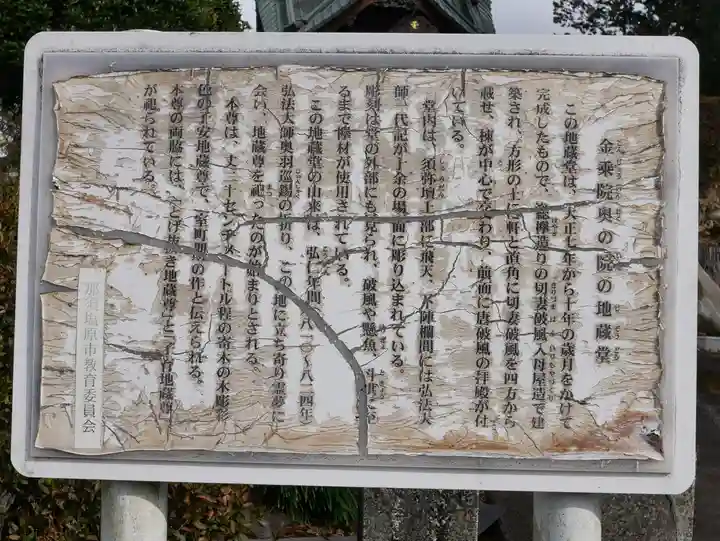 金乗院奥の院の地蔵堂
この地蔵堂は、大正七年から十年の歳月をかけて
完成したもので、総欅造りの切妻破風入母屋造で建
築され、方形の上に軒と直角に切妻破風を四方から
載せ、棟が中心で交わり、前面に唐破風の拝殿が付
いている。
堂内は、須弥壇上部に飛天、内陣欄間には弘法大
師一代記が十余の場面に彫り込まれている。
彫刻は堂の外部にも見られ、破風や懸魚、斗
るまで欅材が使用されている。
この地蔵堂の由来は、弘仁年間(八一〇~八二四年)
弘法大師奥羽巡錫の折り、この地に立ち寄り霊夢に
会い、地蔵尊を祀ったのが始まりとされる。
本尊は、丈三十センチメートル程の寄木の木彫彩
色の子安地蔵尊で、室町期の作と伝えられる。
本尊の両脇には、「とげ抜き地蔵尊」と「子育地蔵尊」
が祀られている。
那須塩原市教育委員会